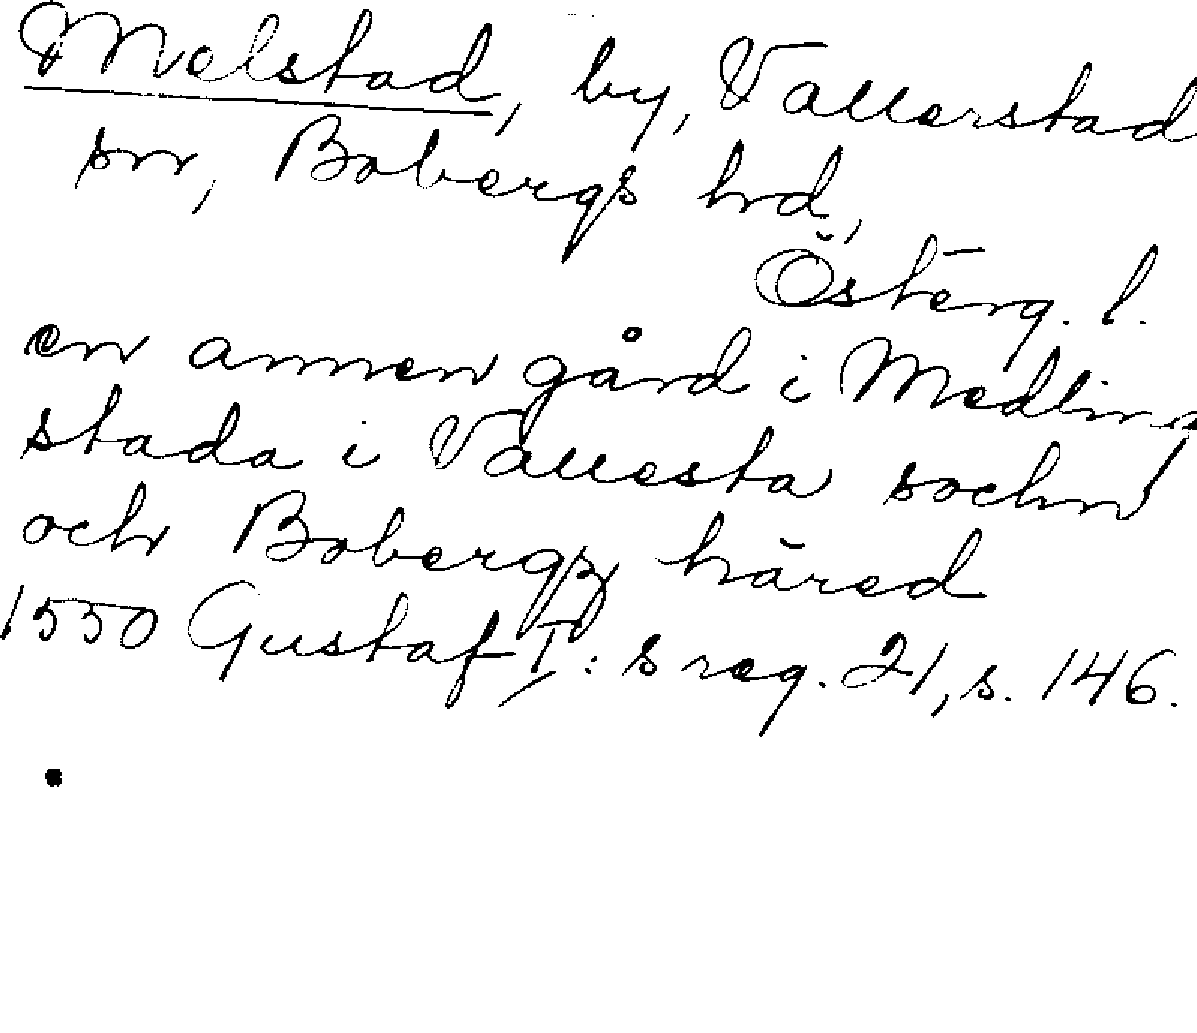 Melstad, by, Vallerstad
sn, Bobergs hd,
Österg. l.
en annen gård i Medling
stada i Vallesta sochn
och Bobergz häred
1550 Gustaf I:s reg. 21, s. 146.